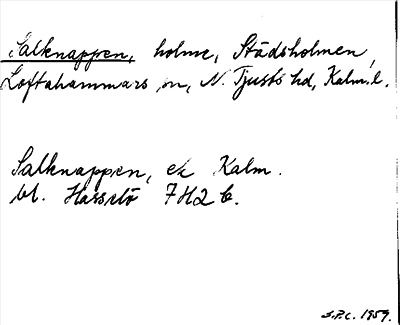 Salknappen, holme, Städsholmen,
Loftahammars sn, N. Tjusts hd, Kalm. l.
Salknappen, ek Kalm.
bl. Hasselö 7H2 b.
S.P.C. 1959.